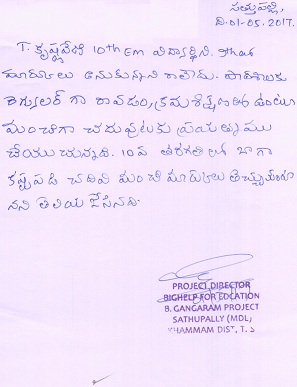 సత్తుపల్లి,
ది.01-05-2017.
T. కృష్ణవేణి 10th EM విద్యార్థిని.
మార్కులు అనుకున్నవి రాలేదు. పాఠశాలకు
రెగ్యులర్ గా రావడం, క్రమశిక్షణ
మంచిగా చదువుటకు ప్రయత్నము
చేయుచున్నది. 10వ తరగతి లో బాగా
కష్టపడి చదివి మంచి మార్కులు తెచ్చుకుంటా
నని తెలియ జేసినది.
PROJECT DIRECTOR
BIGHELP FOR EDCATION
B. GANGARAM PROJECT
SATHUPALLY (MDL,
KHAMMAM DIST, T. S